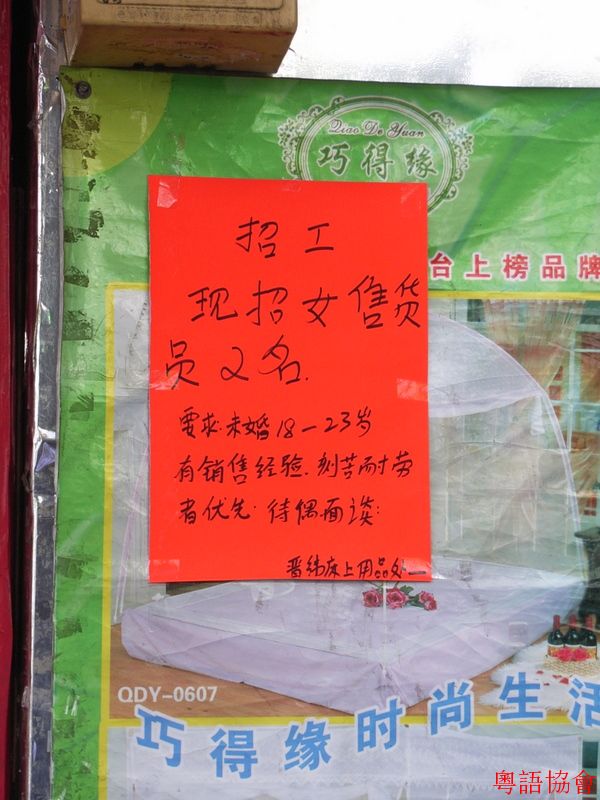 Qiao De Yuan
巧得缘
台上榜品牌
招工
现招女售货
员2名.
要求:未婚18—23岁
有销售经验.刻苦耐劳
者优先.待偶面谈:
晋纬床上用品
QDY-0607
巧得缘时尚生活
粵語協會